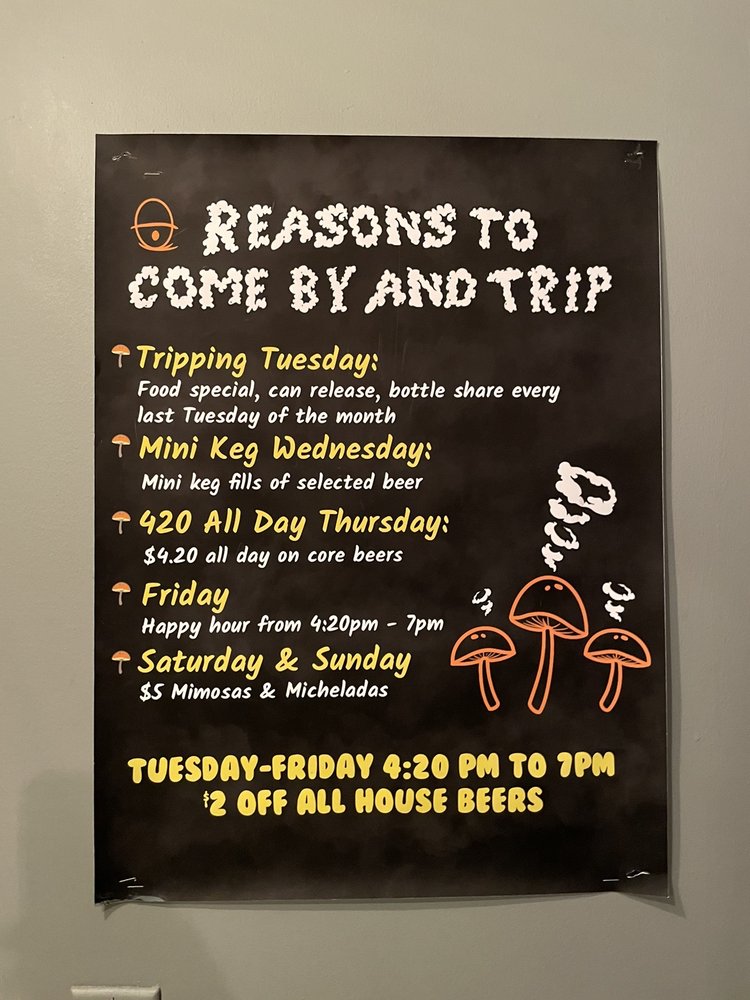 REASONS TO
COME BY AND TRIP
Tripping Tuesday:
Food special, can release, bottle share every
last Tuesday of the month
Mini Keg Wednesday:
Mini keg fills of selected beer
420 All Day Thursday:
$4.20 all day on core beers
Friday
Happy hour from 4:20pm - 7pm
Saturday & Sunday
$5 Mimosas & Micheladas
TUESDAY-FRIDAY 4:20 PM TO 7PM
$2 OFF ALL HOUSE BEERS